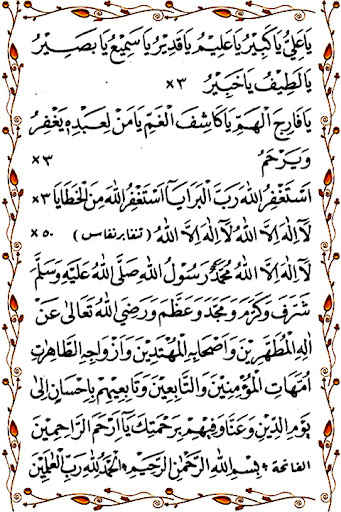 يَاعَلِيُّ يَاكَبِيْرُ يَاعَلِيْمُ يَاقَدِيْرُ يَاسَمِيْعُ يَابَصِيْرُ
يَالَطِيْفُ يَاخَبِيْرُ ×٣
يَافَارِجَ الْهَمِّ يَاكَاشِفَ الْغَمِّ يَامَنْ لِعَبْدِهِ يَغْفِرُ
وَيَرْحَمُ ×٣
اَسْتَغْفِرُ اللهَ رَبَّ الْبَرَايَا اَسْتَغْفِرُ اللهَ مِنَ الْخَطَايَا ×٣
لَآ اِلٰهَ اِلَّا اللهُ لَآ اِلٰهَ اِلَّا اللهُ ( تنفا برنفاس ) ×٥٠
لَآ اِلٰهَ اِلَّا اللهُ مُحَمَّدٌ رَسُوْلُ اللهِ صَلَّى اللهُ عَلَيْهِ وَسَلَّمَ
شَرَفَ وَكَرَّمَ وَمَجَّدَ وَعَظَّمَ وَرَضِيَ اللهُ تَعَالٰى عَنْ
اٰلِهِ الْمُطَهَّرِيْنَ وَاَصْحَابِهِ الْمُهْتَدِيْنَ وَاَزْوَاجِهِ الطَّاهِرَاتِ
اُمَّهَاتِ الْمُؤْمِنِيْنَ وَالتَّابِعِيْنَ وَتَابِعِيْهِمْ بِاِحْسَانٍ اِلٰى
يَوْمِ الدِّيْنِ وَعَنَّا وَفِيْهِمْ بِرَحْمَتِكَ يَآ اَرْحَمَ الرَّاحِمِيْنَ
الفاتحة * بِسْمِ اللهِ الرَّحْمٰنِ الرَّحِيْمِ * اَلْحَمْدُ لِلّٰهِ رَبِّ الْعٰلَمِيْنَ